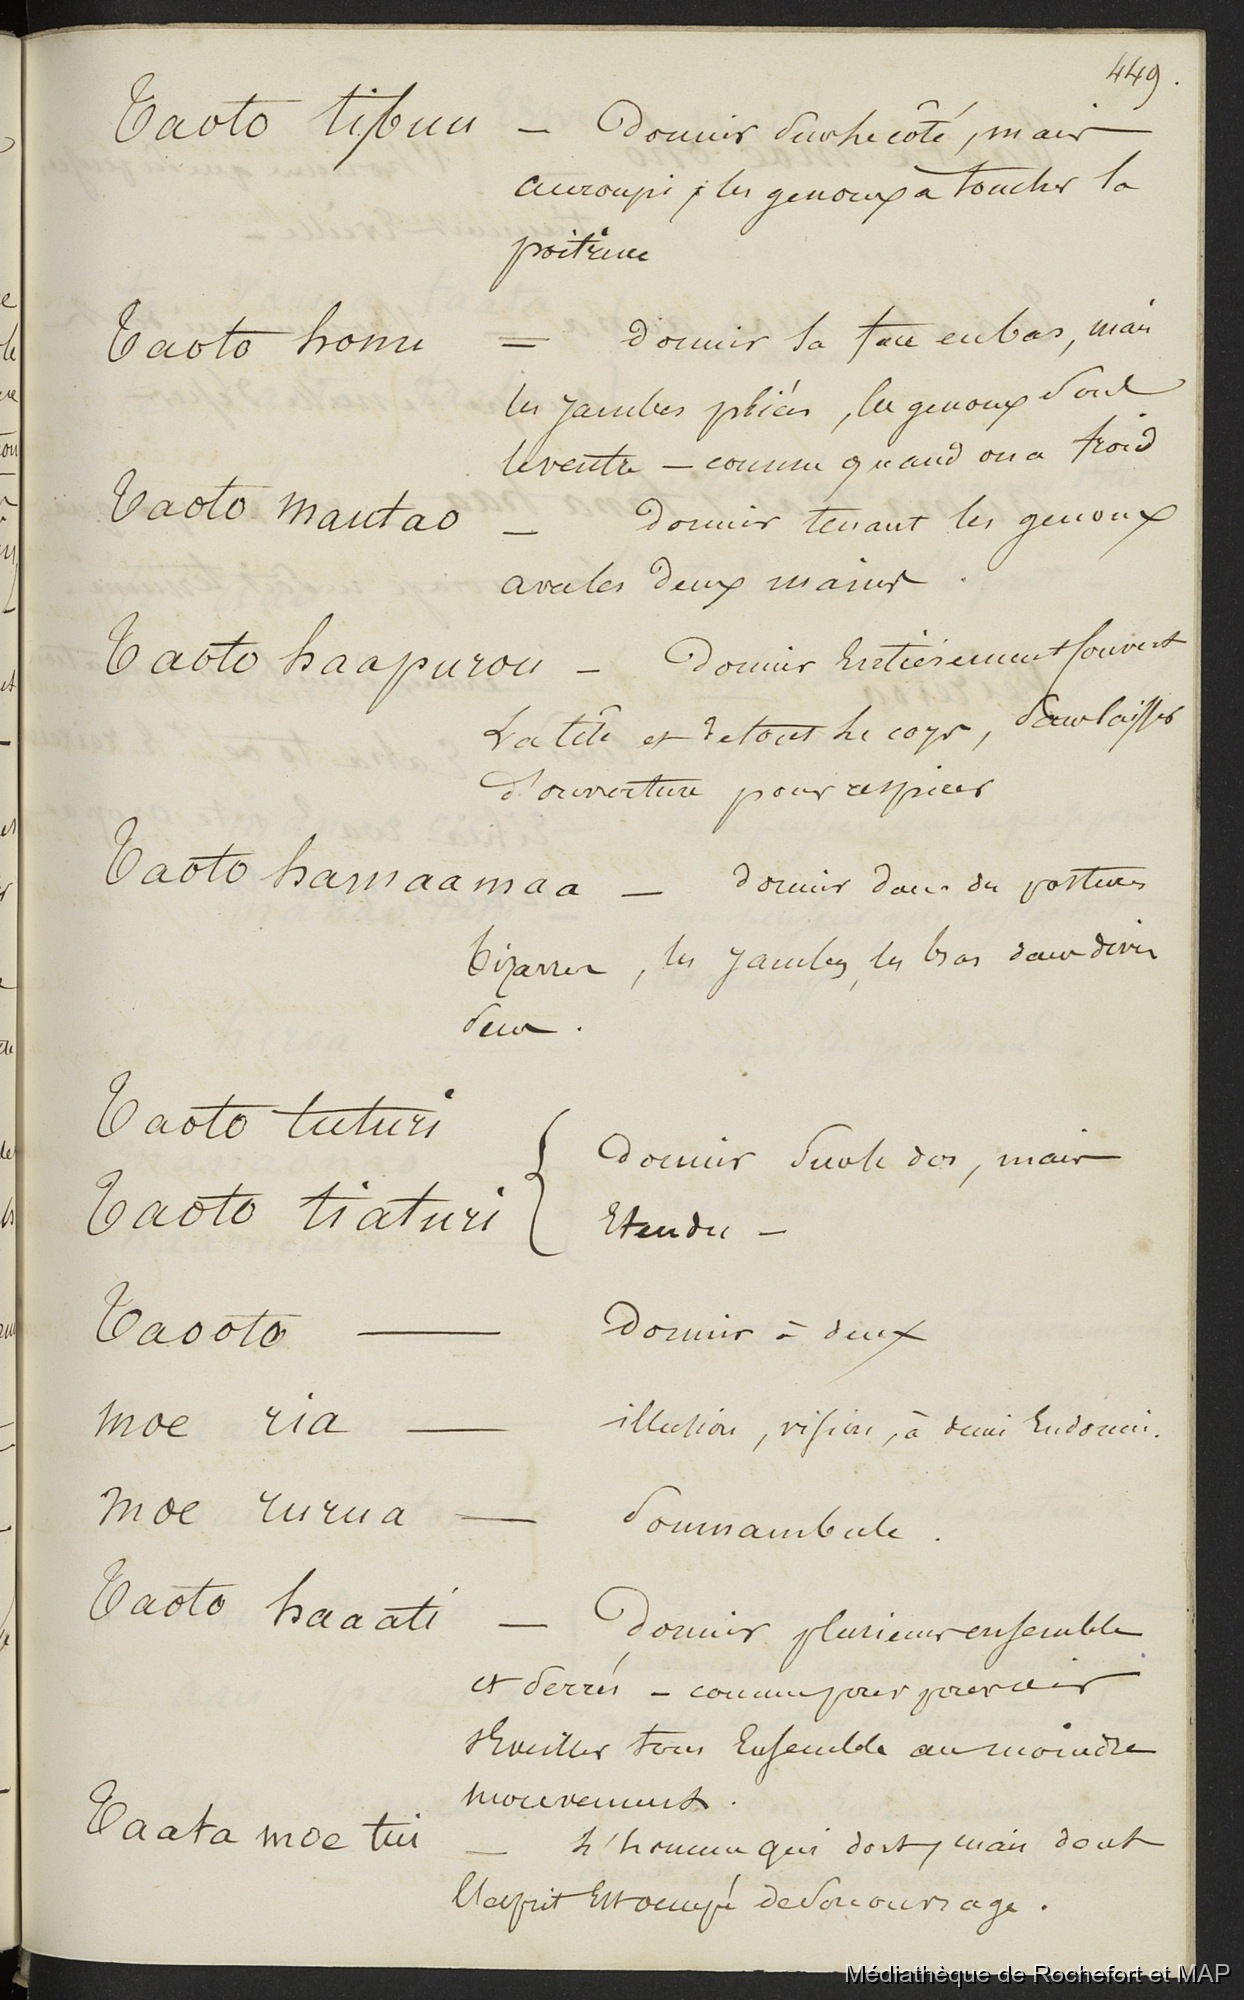 449.
Taoto tipuu — Dormir sur le côté, mais
accroupi, les genoux à toucher la
poitrine
Taoto honu = Dormir la face en bas, mais
les jambes pliées, les genoux sous
le ventre — comme quand on a froid
Taoto mautao — Dormir tenant les genoux
avec les deux mains.
Taoto haapurou — Dormir Entièrement couvert
La tête et de tout le corps, sans laisser
d'ouverture pour respirer
Taoto hamaamaa — dormir dans des postures
bizarres, les jambes, les bras dans divers
sens.
Taoto tuturi
Taoto tiaturi { Dormir sur le dos, mais
Etendu —
Taooto — Dormir à deux
moe ria — illusion, vision, à demi Endormi.
moe rurua — Somnambule.
Taoto haaati — Dormir plusieurs ensemble
et serrés — comme pour pouvoir
s'Eveiller tous Ensemble au moindre
mouvement.
Taata moe tui — L'homme qui dort, mais dont
l'esprit Est occupé de son ouvrage.
Médiathèque de Rochefort et MAP